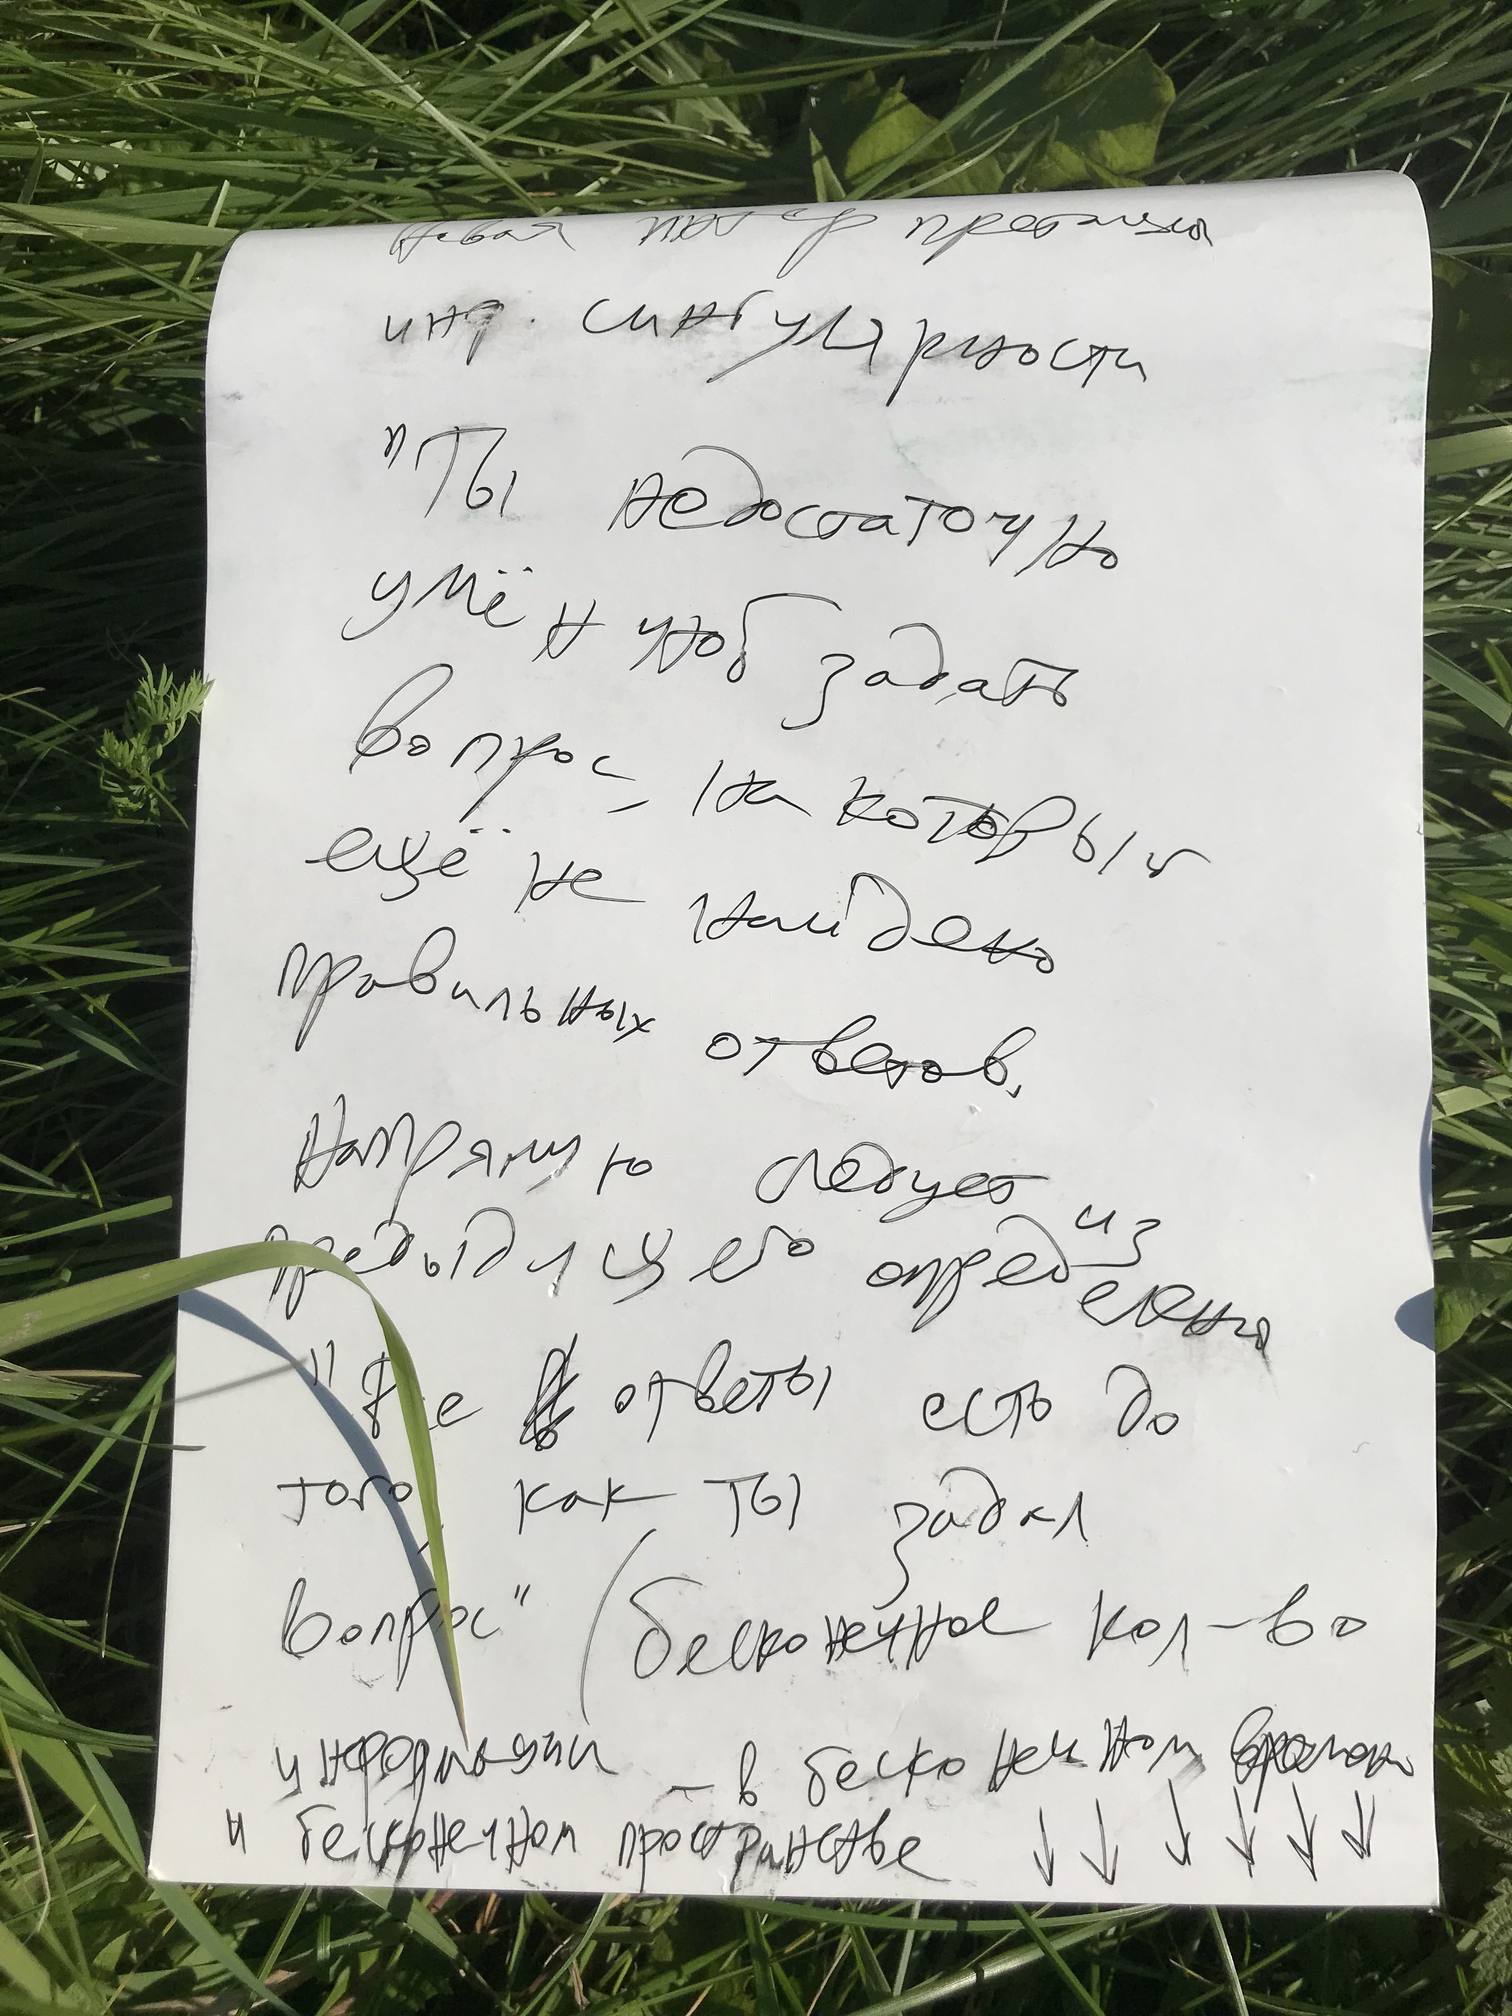 новая
инф. сингулярности
"Ты недостаточно
умён чтоб задать
вопрос, на который
ещё не найдено
правильных ответов,
Напрямую следует из
предыдущего определения
"Все ответы есть до
того, как ты задал
вопрос" (бесконечное кол-во
информации - в бесконечном времени
и бесконечном пространстве ↓ ↓ ↓ ↓ ↓ ↓